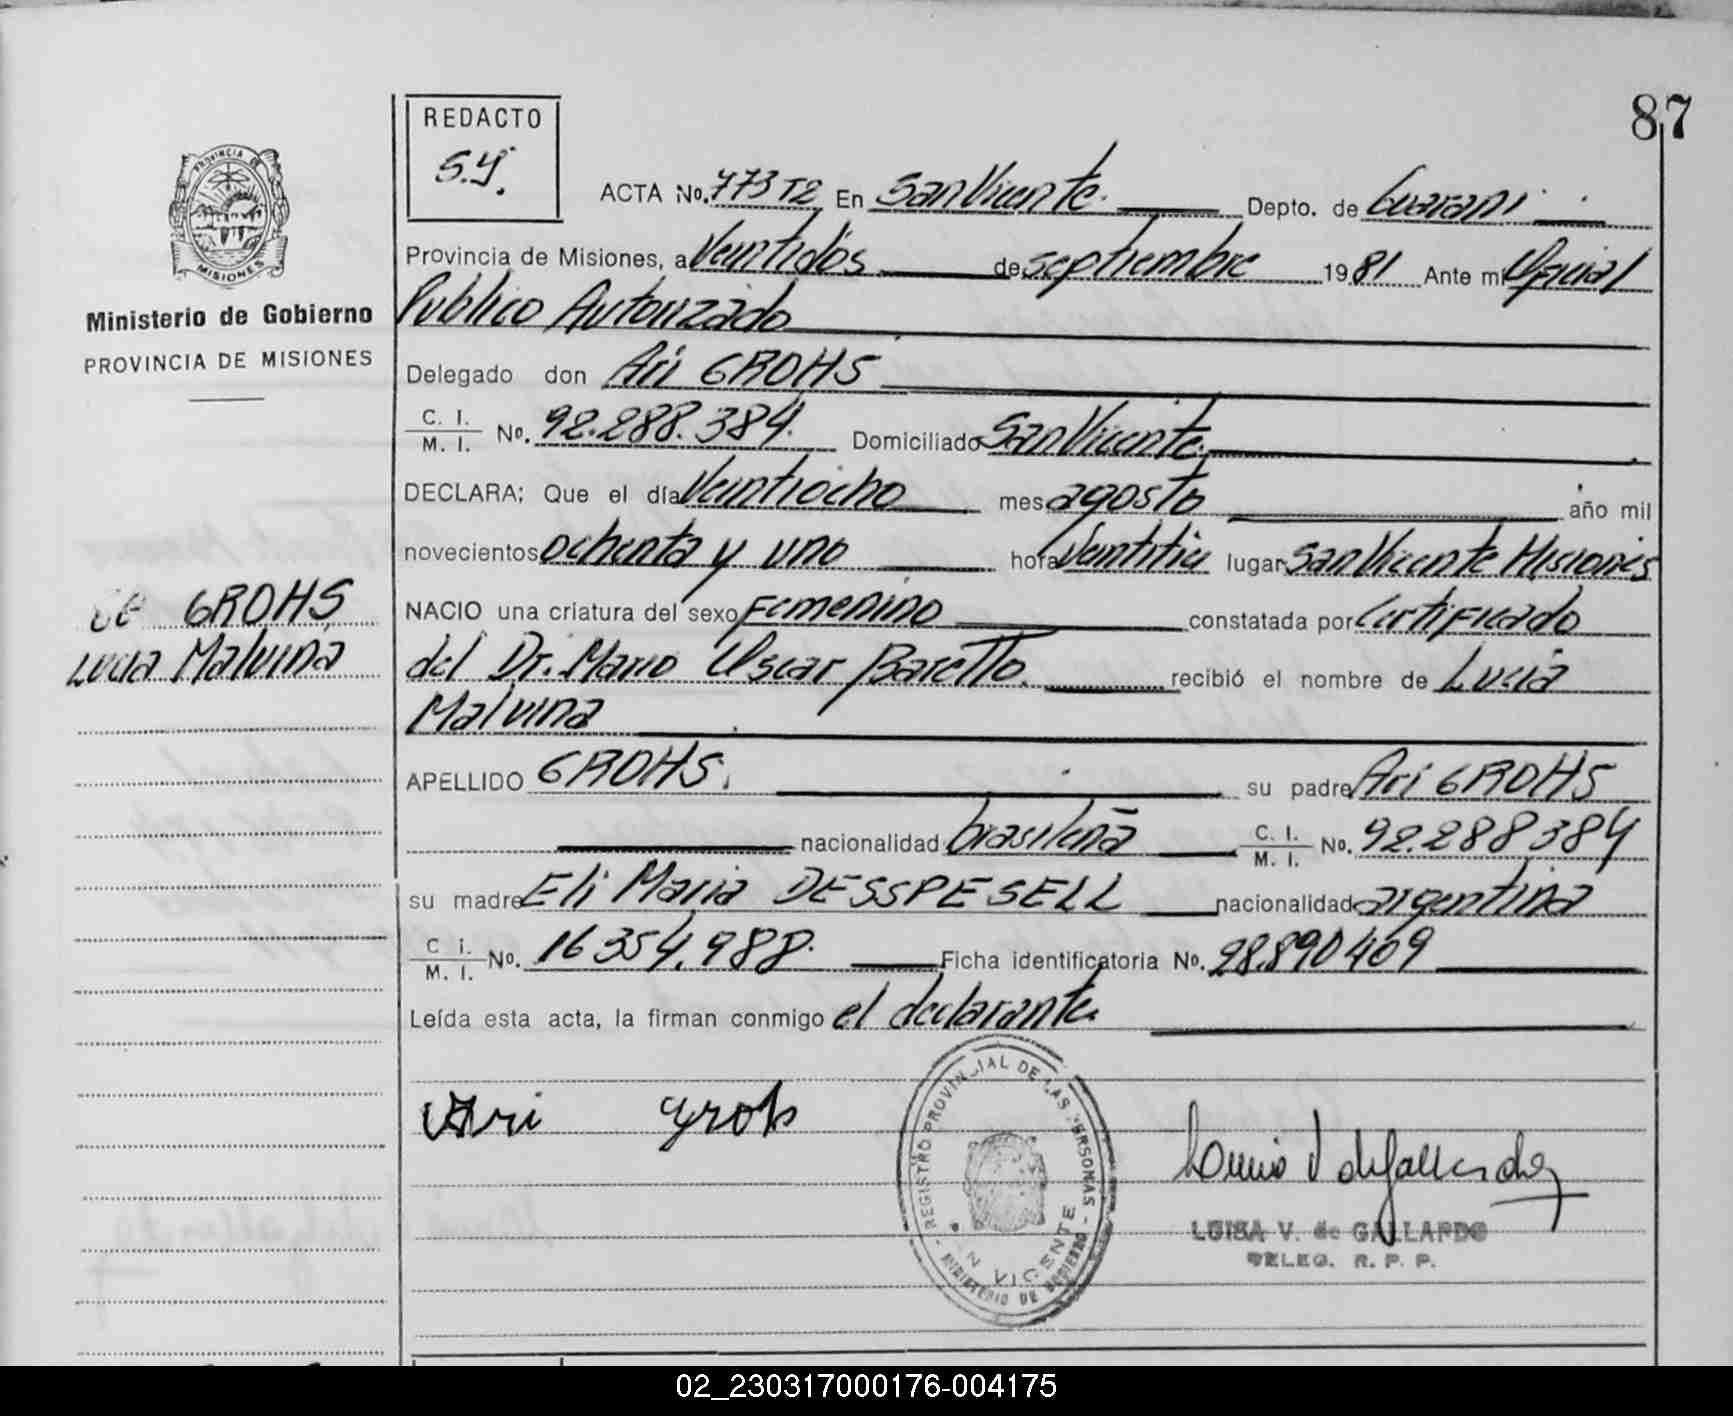 87
REDACTO
S.Y.
PROVINCIA DE
MISIONES
Ministerio de Gobierno
PROVINCIA DE MISIONES
GROHS
Lucia Malvina
ACTA No. 773 T2 En San Vicente. Depto. de Guarani
Provincia de Misiones, a Veintidós de septiembre 1981 Ante mi Oficial
Publico Autorizado
Delegado don Ari GROHS
C. I. / M. I. No. 92.288.384. Domiciliado San Vicente.
DECLARA: Que el día Veintiocho mes agosto año mil
novecientos ochenta y uno hora Veintitres lugar San Vicente Misiones
NACIO una criatura del sexo Femenino constatada por Certificado
del Dr. Mario Oscar Baretto. recibió el nombre de Lucia
Malvina
APELLIDO GROHS. su padre Ari GROHS
nacionalidad brasileña C. I. / M. I. No. 92.288384
su madre Eli Maria DESSPESELL nacionalidad argentina
C i. / M. I. No. 16354.988. Ficha identificatoria No. 28.890409
Leída esta acta, la firman conmigo el declarante.
Ari Groh
REGISTRO PROVINCIAL DE LAS PERSONAS - MINISTERIO DE GOBIERNO
SAN VICENTE
LUISA V. de GALLARDO
DELEG. R. P. P.
02_230317000176-004175